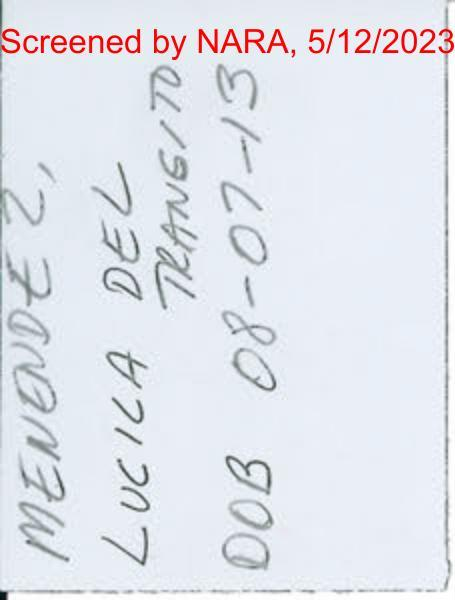 Screened by NARA, 5/12/2023
MENENDEZ,
LUCILA DEL
TRANSITO
DOB 08-07-13